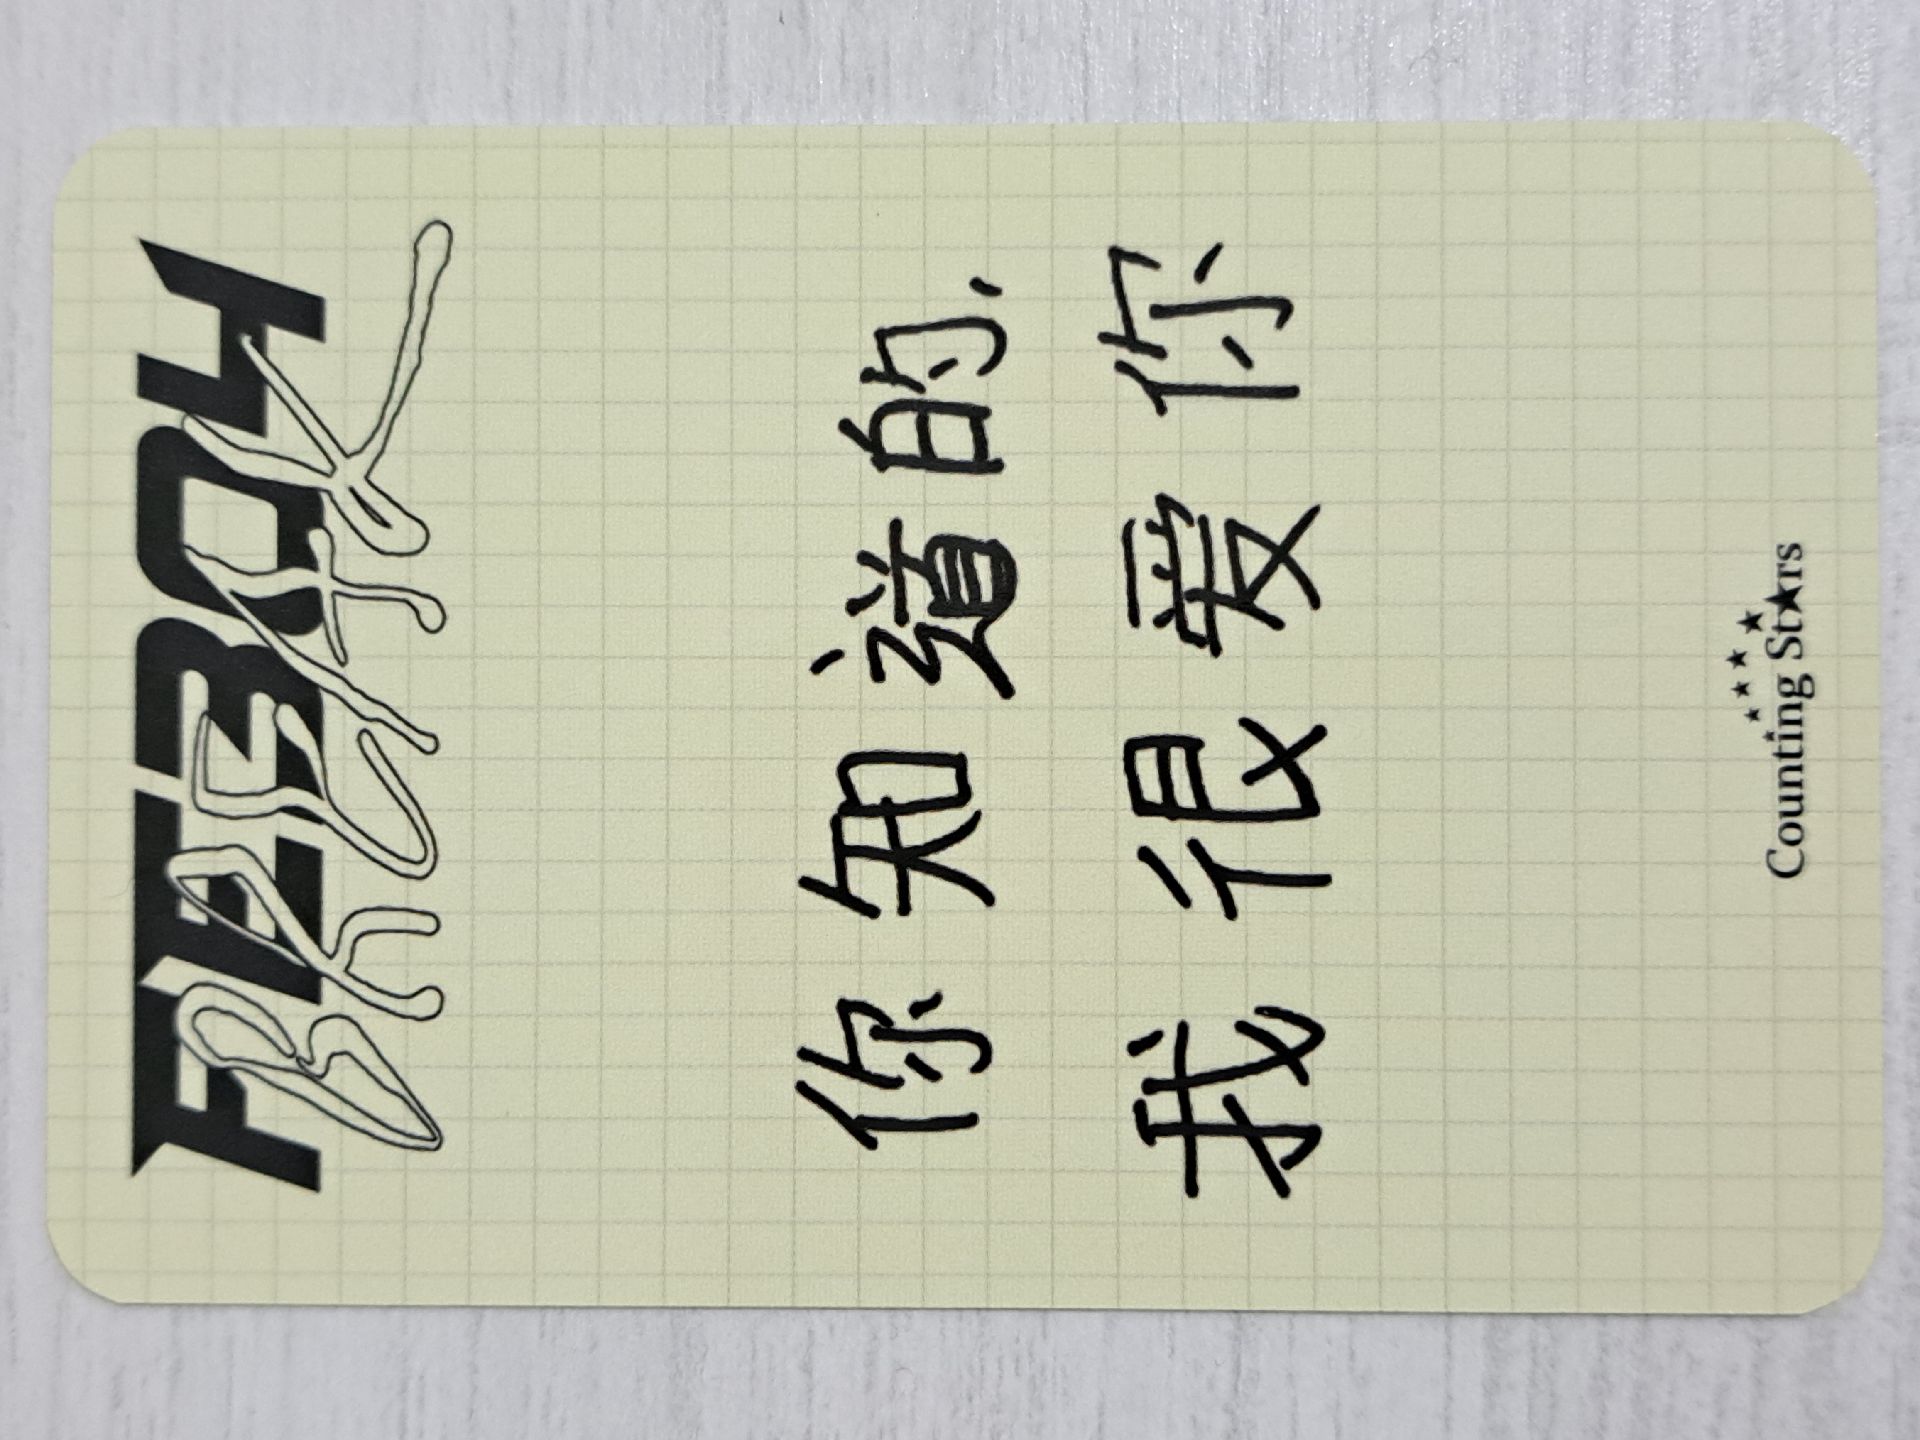 你知道的，
我很爱你
Counting Stars